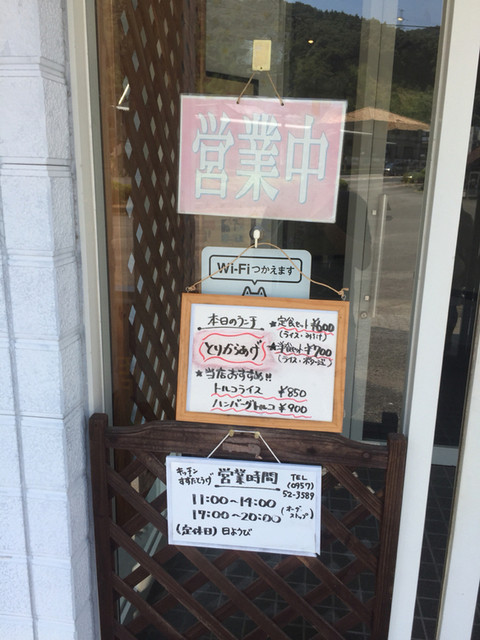 営業中
Wi-Fiつかえます
本日のランチ
とりからあげ
★定食セット¥600
(ライス・みそ汁)
★洋食セット¥700
★当店おすすめ!!
トルコライス ¥850
ハンバーグトルコ ¥900
キッチン
営業時間
TEL
(0957)
52-3589
11:00〜14:00
17:00〜20:00
(オーダーストップ)
(定休日) 日ようび